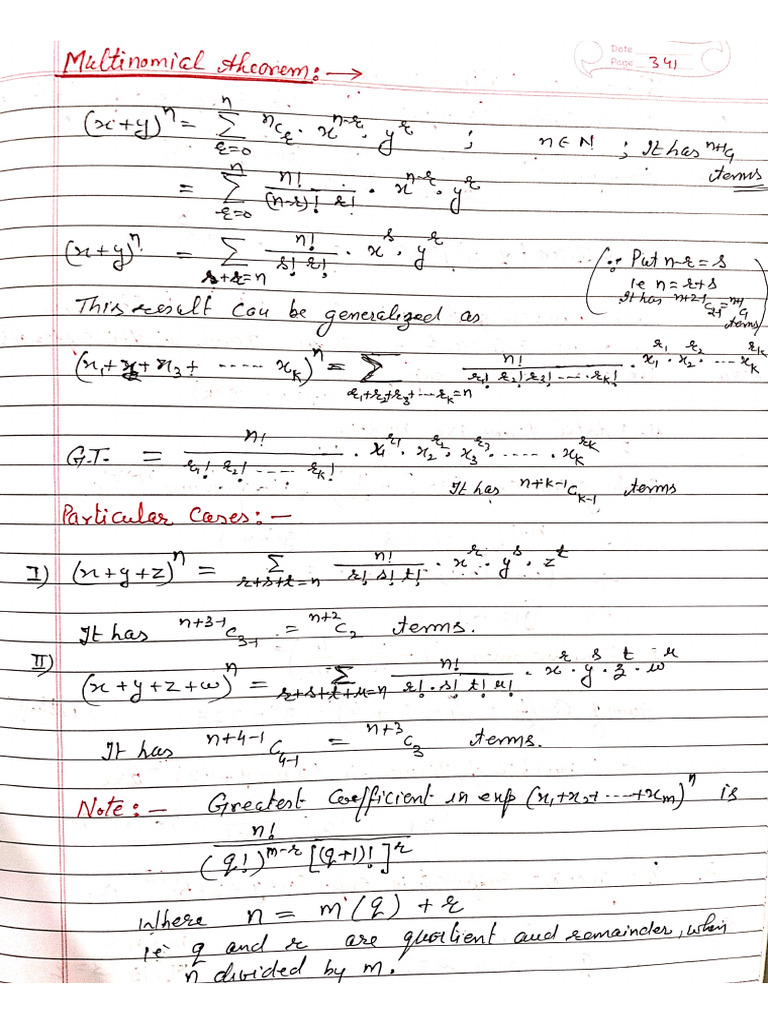 Date
Page 341
Multinomial theorem:- →
(x+y)^n = Σ_{r=0}^{n} ^nC_r · x^{n-r} · y^r ; n∈N ; It has ^{n+1}C_1 terms
= Σ_{r=0}^{n} n!/((n-r)! r!) · x^{n-r} · y^r
(x+y)^n = Σ_{s+r=n} n!/(s! r!) · x^s · y^r
(∵ Put n-r = s
ie n = r+s
It has ^{n+2-1}C_{2-1} = ^{n+1}C_1 terms)
This result can be generalized as
(x_1 + x_2 + x_3 + ----- x_k)^n = Σ_{r_1+r_2+r_3+---r_k=n} n!/(r_1! r_2! r_3! ---- r_k!) · x_1^{r_1} · x_2^{r_2} · --- x_k^{r_k}
G.T. = n!/(r_1! r_2! ---- r_k!) · x_1^{r_1} · x_2^{r_2} · x_3^{r_3} · ----- · x_k^{r_k}
It has ^{n+k-1}C_{k-1} terms
Particular Cases:-
I) (x+y+z)^n = Σ_{r+s+t=n} n!/(r! s! t!) · x^r · y^s · z^t
It has ^{n+3-1}C_{3-1} = ^{n+2}C_2 terms.
II) (x+y+z+w)^n = Σ_{r+s+t+u=n} n!/(r! · s! t! u!) · x^r · y^s · z^t · w^u
It has ^{n+4-1}C_{4-1} = ^{n+3}C_3 terms.
Note:- Greatest Coefficient in exp (x_1+x_2+---+x_m)^n is
n!/((q!)^{m-r} [(q+1)!]^r)
Where n = m(q) + r
ie q and r are quotient and remainder, when
n divided by m.